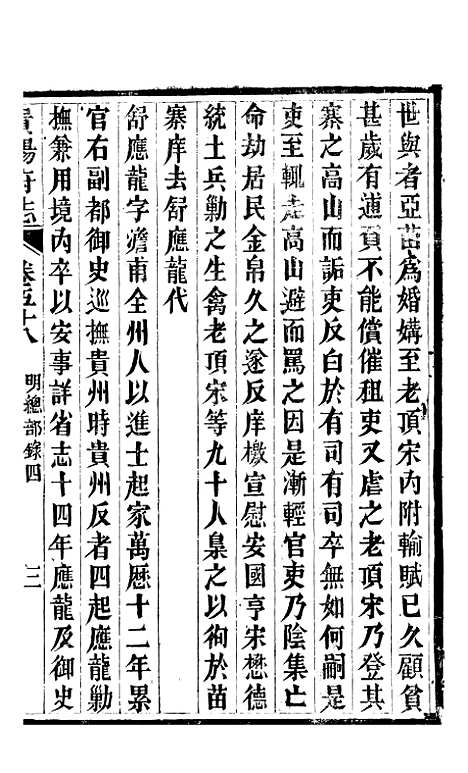 世與者亞苗爲婚媾至老頂宋內附輸賦已久顧貧
甚歲有逋負不能償催租吏又虐之老頂宋乃登其
寨之高山而詬吏反白於有司有司卒無如何嗣是
吏至輒走高山避而罵之因是漸輕官吏乃陰集亡
命劫居民金帛久之遂反庠檄宣慰安國亨宋懋德
統土兵勦之生禽老頂宋等九十人梟之以徇於苗
寨庠去舒應龍代
舒應龍字澹甫全州人以進士起家萬歷十二年累
官右副都御史巡撫貴州時貴州反者四起應龍勦
撫兼用境內卒以安事詳省志十四年應龍及御史
貴陽府志 卷五十八 明總部錄四 三